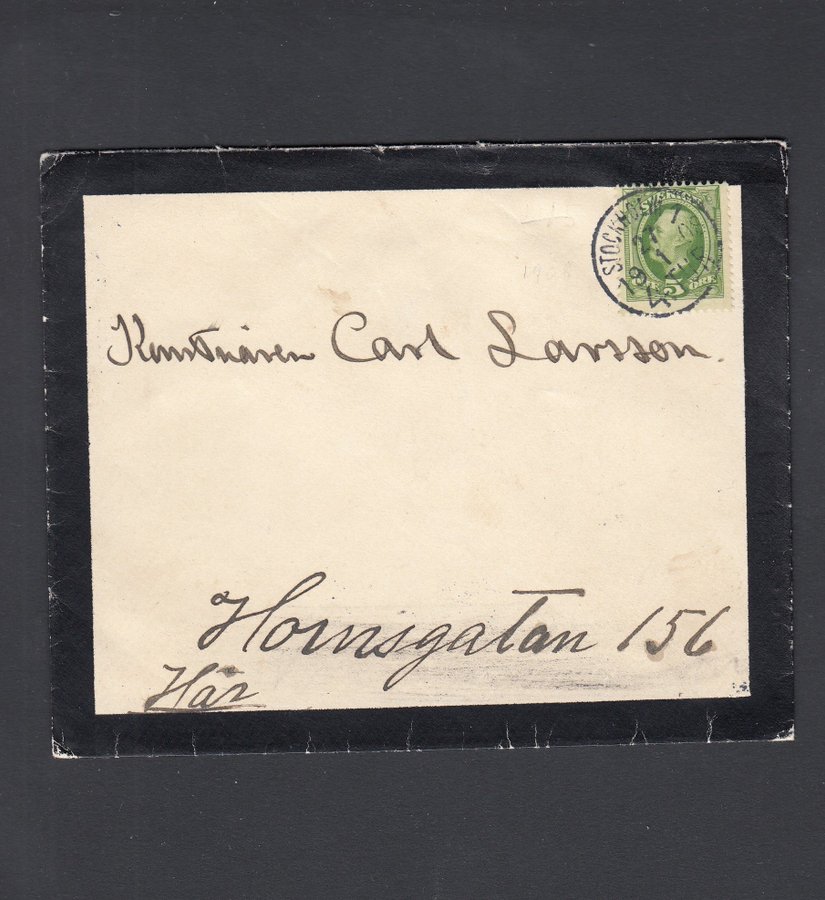 STOCKHOLM 1
5 ÖRE
1908
Konstnären Carl Larsson.
Hornsgatan 156
Här